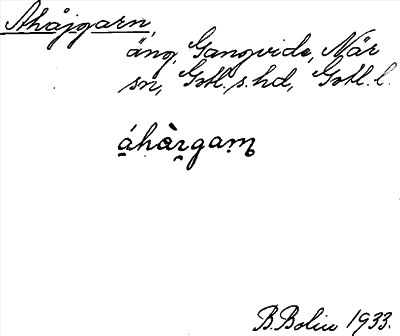 Ahåjgarn,
äng, Gangvide, När
sn, Gotl. s. hd, Gotl. l.
áhàrgam̥
B. Bolin 1933.